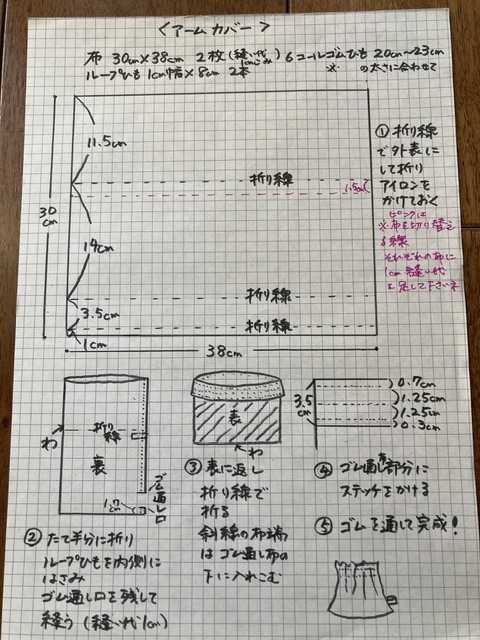 <アームカバー>
布 30cm×38cm 2枚(縫い代1cmこみ) 6コールゴムひも 20cm〜23cm
ループひも 1cm巾×8cm 2本 ※ の太さに合わせて
11.5cm
折り線
1.5cm
30cm
14cm
折り線
3.5cm
折り線
1cm
38cm
① 折り線
で外表に
して折り
アイロンを
かけておく
ピンクは
※布を切り替え
る線
それぞれの布に
1cm 縫い代
を足して下さいネ
わ
折り線
裏
ゴム通し口
1.2cm
② たて半分に折り
ループひもを内側に
はさみ
ゴム通し口を残して
縫う (縫い代1cm)
表
わ
③ 表に返し
折り線で
折る
斜線の布端
はゴム通し布の
下に入れこむ
3.5cm
0.7cm
1.25cm
1.25cm
0.3cm
④ ゴム通し布部分に
ステッチをかける
⑤ ゴムを通して完成!